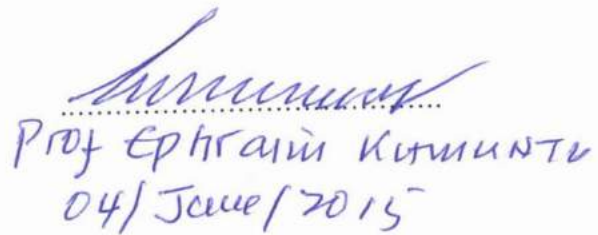 Prof Ephraim Kamuntu
04/June/2015